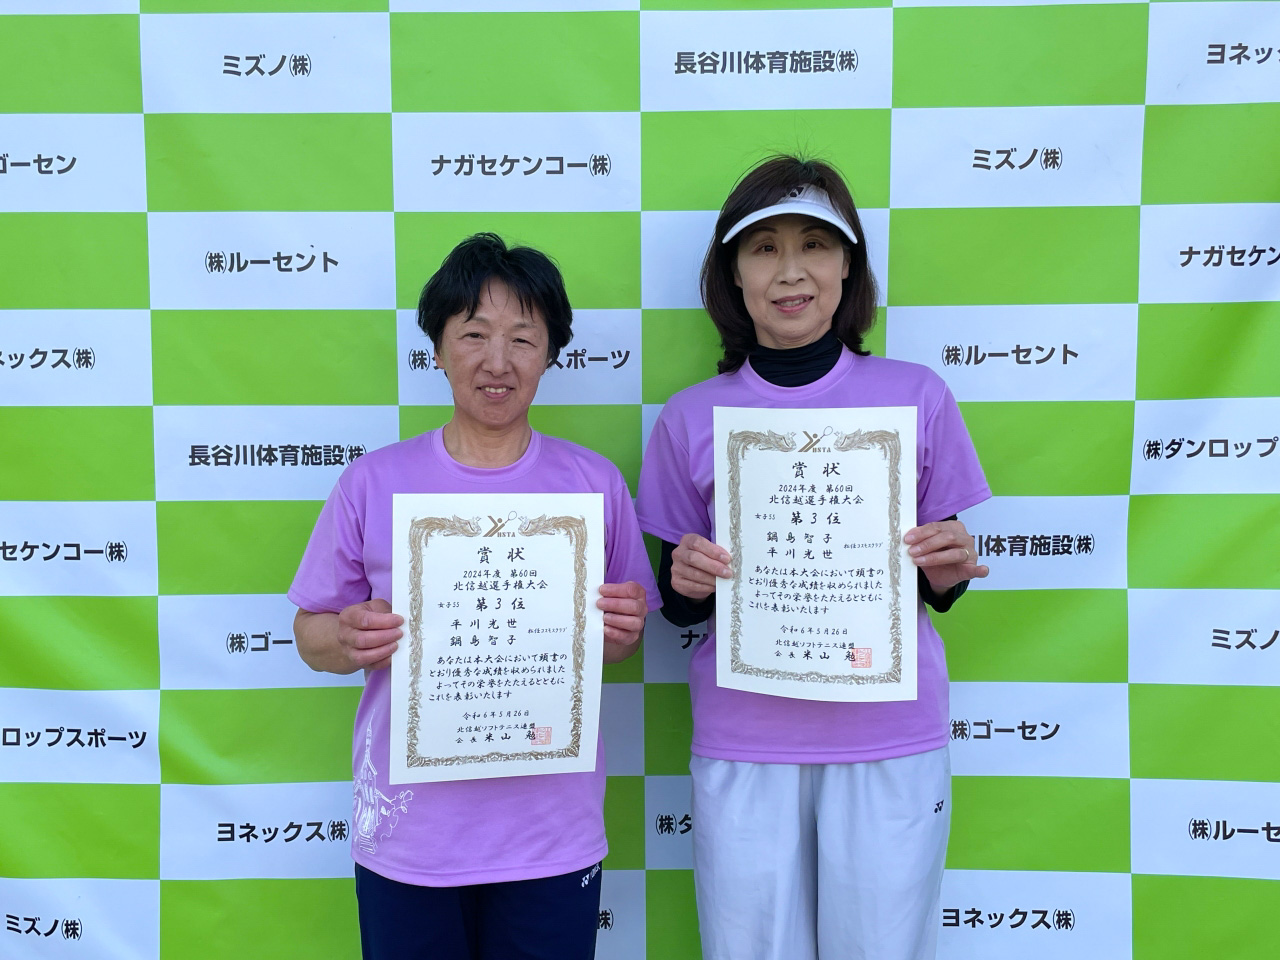 ミズノ㈱
長谷川体育施設㈱
ヨネッ
ゴーセン
ナガセケンコー㈱
ミズノ㈱
㈱ルーセント
ナガセケン
ックス㈱
㈱
スポーツ
㈱ルーセント
長谷川体育施設㈱
㈱ダンロップ
セケンコー㈱
川体育施設㈱
㈱ゴー
ミズノ
ロップスポーツ
㈱ゴーセン
ヨネックス㈱
㈱ダ
㈱ルーセ
ミズノ㈱
㈱
ヨネックス㈱
HSTA
賞状
2024年度 第60回
北信越選手権大会
女子SS 第3位
平川光世
鍋島智子
松任コスモスクラブ
あなたは本大会において頭書の
とおり優秀な成績を収められました
よってその栄誉をたたえるとともに
これを表彰いたします
令和6年5月26日
北信越ソフトテニス連盟
会長 米山 勉
HSTA
賞状
2024年度 第60回
北信越選手権大会
女子SS 第3位
鍋島智子
平川光世
松任コスモスクラブ
あなたは本大会において頭書の
とおり優秀な成績を収められました
よってその栄誉をたたえるとともに
これを表彰いたします
令和6年5月26日
北信越ソフトテニス連盟
会長 米山 勉